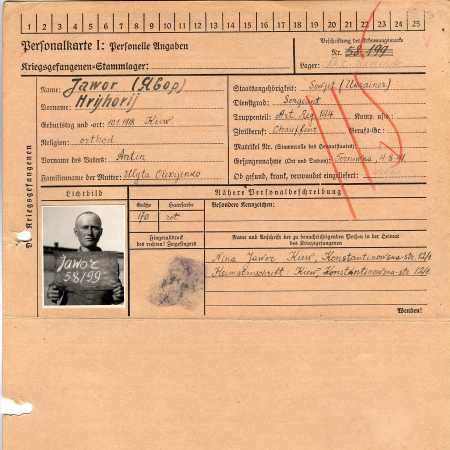 1 2 3 4 5 6 7 8 9 10 11 12 13 14 15 16 17 18 19 20 21 22 23 24 25
Personalkarte I: Personelle Angaben
Kriegsgefangenen-Stammlager:
Beschriftung der Erkennungsmarke
Nr. 58 199
Lager:
Name: Jawor (Явор)
Vorname: Hrijhorij
Geburtstag und -ort: 10.1.1918 Kiew
Religion: orthod
Vorname des Vaters: Antin
Familienname der Mutter: Ulyta
Staatsangehörigkeit: Sowjet (Ukrainer)
Dienstgrad: Sergeant
Truppenteil: Art. Reg. Komp. usw.:
Zivilberuf: Chauffeur Berufs-Gr.:
Matrikel Nr. (Stammrolle des Heimatstaates):
Gefangennahme (Ort und Datum): 4.8.41
Ob gesund, krank, verwundet eingeliefert:
Des Kriegsgefangenen
Lichtbild
Nähere Personalbeschreibung
Größe Haarfarbe
170 rot
Besondere Kennzeichen:
Fingerabdruck
des rechten! Zeigefingers
Name und Anschrift der zu benachrichtigenden Person in der Heimat
des Kriegsgefangenen
Jawor
58199
Nina Jawor Kiew, Konstantinowska-str. 12/4
Heimatanschrift: Kiew, Konstantinowska-str. 12/4
Wenden!